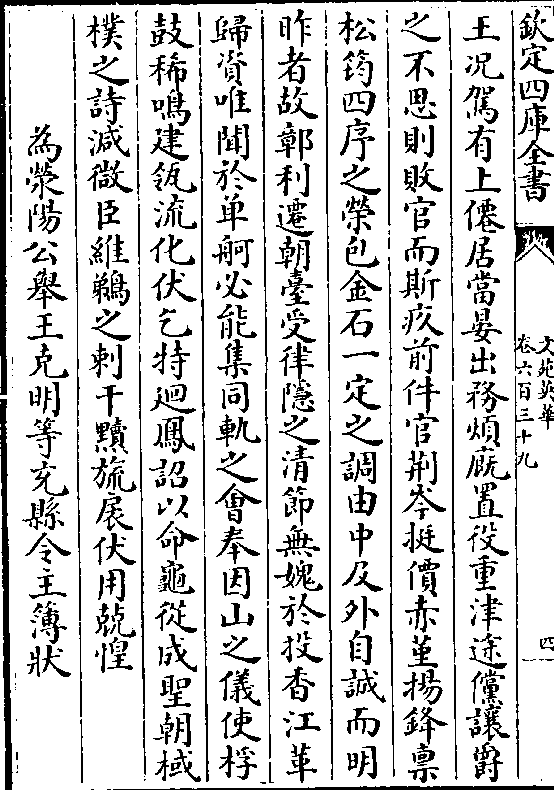 欽定四庫全書
文苑英華
卷六百三十九
四
王况駕有上僊居當晏出務煩廐置役重津途儻讓爵
之不思則敗官而斯疚前件官荆岑挺價赤堇揚鋒稟
松筠四序之榮包金石一定之調由中及外自誠而明
昨者故鄣利遷朝臺受律隱之清節無媿於投香江革
歸資唯聞於单舸必能集同軌之會奉因山之儀使桴
鼓稀鳴建瓴流化伏乞特迴鳳詔以命龜從成聖朝棫
樸之詩減微臣維鵜之刺干黷旒扆伏用兢惶
為滎陽公舉王克明等充縣令主簿狀